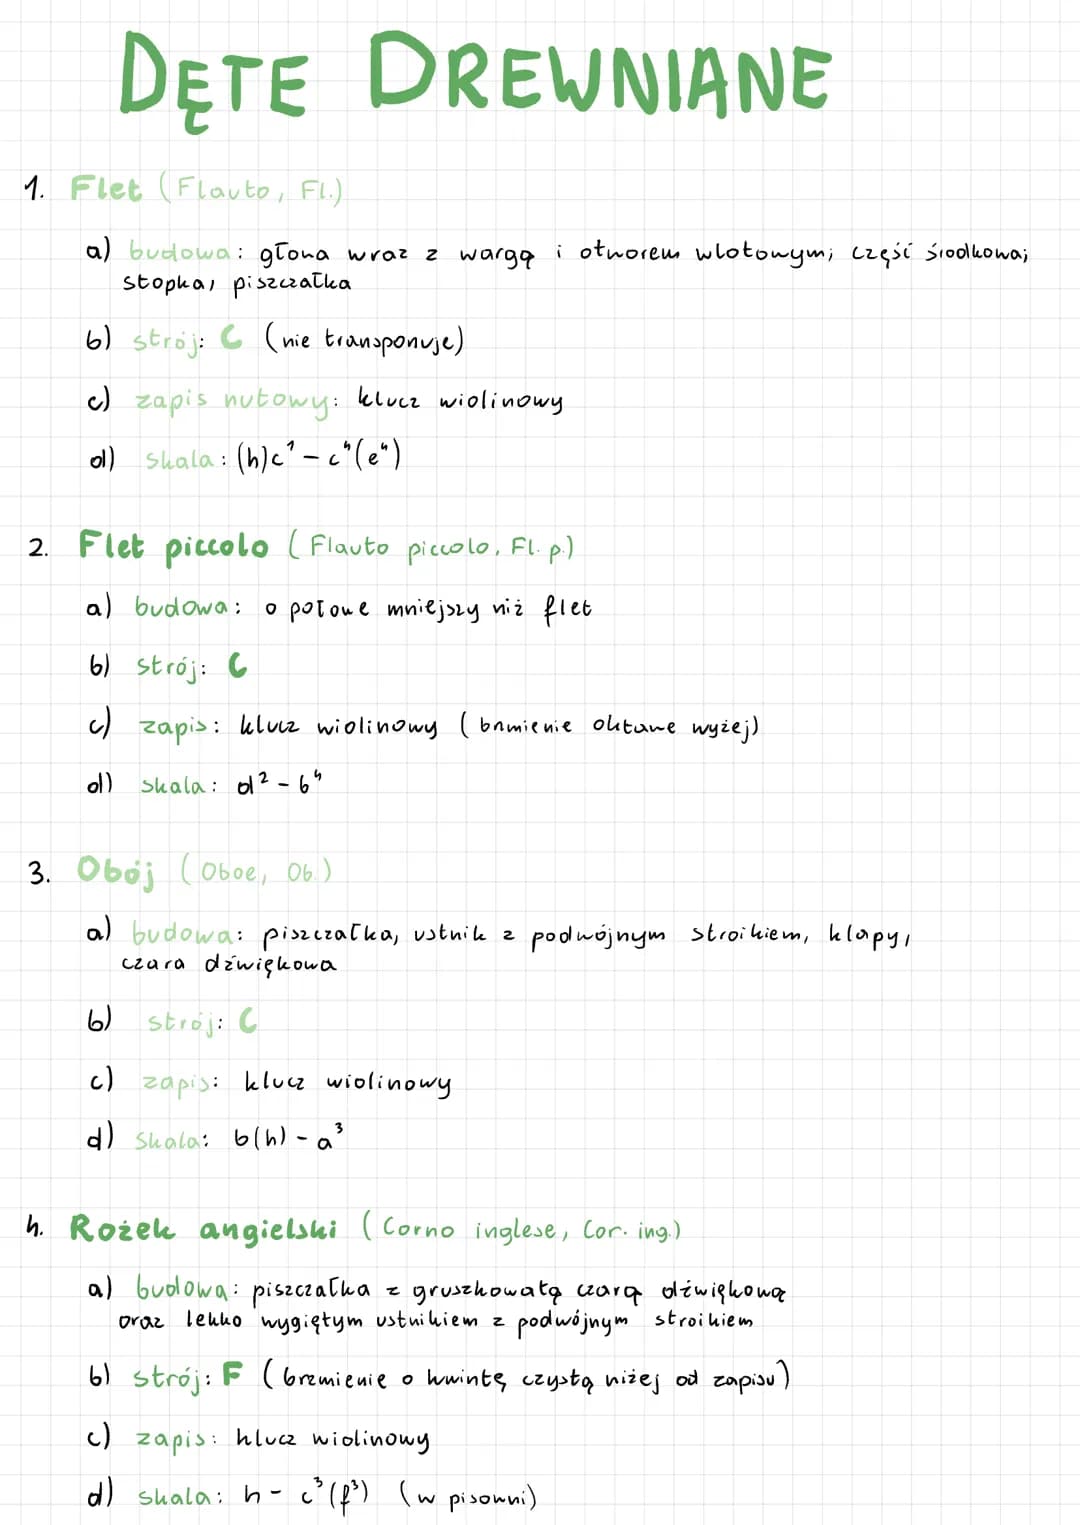 DĘTE DREWNIANE
1. Flet (Flauto, Fl.)
a) budowa: głowa wraz z wargą i otworem wlotowym; część środkowa;
stopka, piszczałka
b) strój: C (nie transponuje)
c) zapis nutowy: klucz wiolinowy
d) skala: (h)c¹ – c⁴(e⁴)
2. Flet piccolo (Flauto piccolo, Fl. p.)
a) budowa: o połowe mniejszy niż flet
b) strój: C
c) zapis: klucz wiolinowy (brzmienie oktawe wyżej)
d) skala: d² - b⁴
3. Obój (Oboe, Ob.)
a) budowa: piszczałka, ustnik z podwójnym stroikiem, klapy,
czara dźwiękowa
b) strój: C
c) zapis: klucz wiolinowy
d) skala: b(h) - a³
4. Rożek angielski (Corno inglese, Cor. ing.)
a) budowa: piszczałka z gruszkowatą czarą dźwiękową
oraz lekko wygiętym ustnikiem z podwójnym stroikiem
b) strój: F (brzmienie o kwintę czystą niżej od zapisu)
c) zapis: klucz wiolinowy
d) skala: h - c³(f³) (w pisowni)